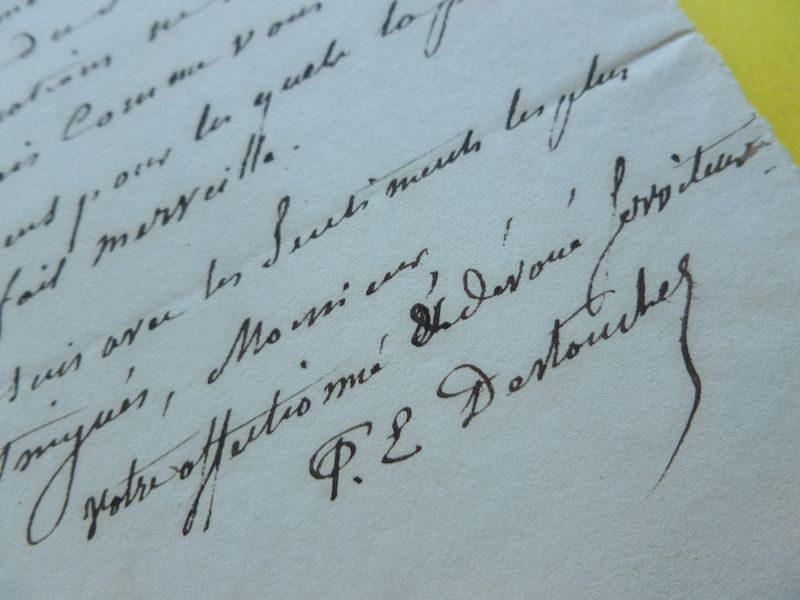 comme vous
pour les quels
fait merveille.
suis avec les Sentiments les plus
Monsieur,
votre affectionné & dévoué Serviteur.
P. E Destouches